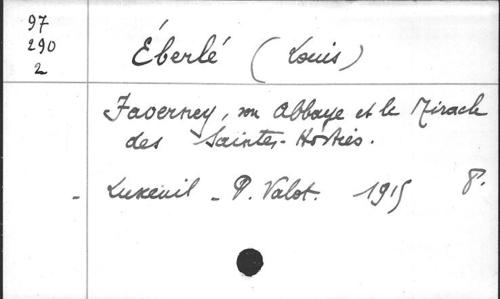 97
290
2
Éberlé (Louis)
Faverney, son Abbaye et le Miracle
des Saintes-Hosties.
- Luxeuil - P. Valot. 1915 8°.